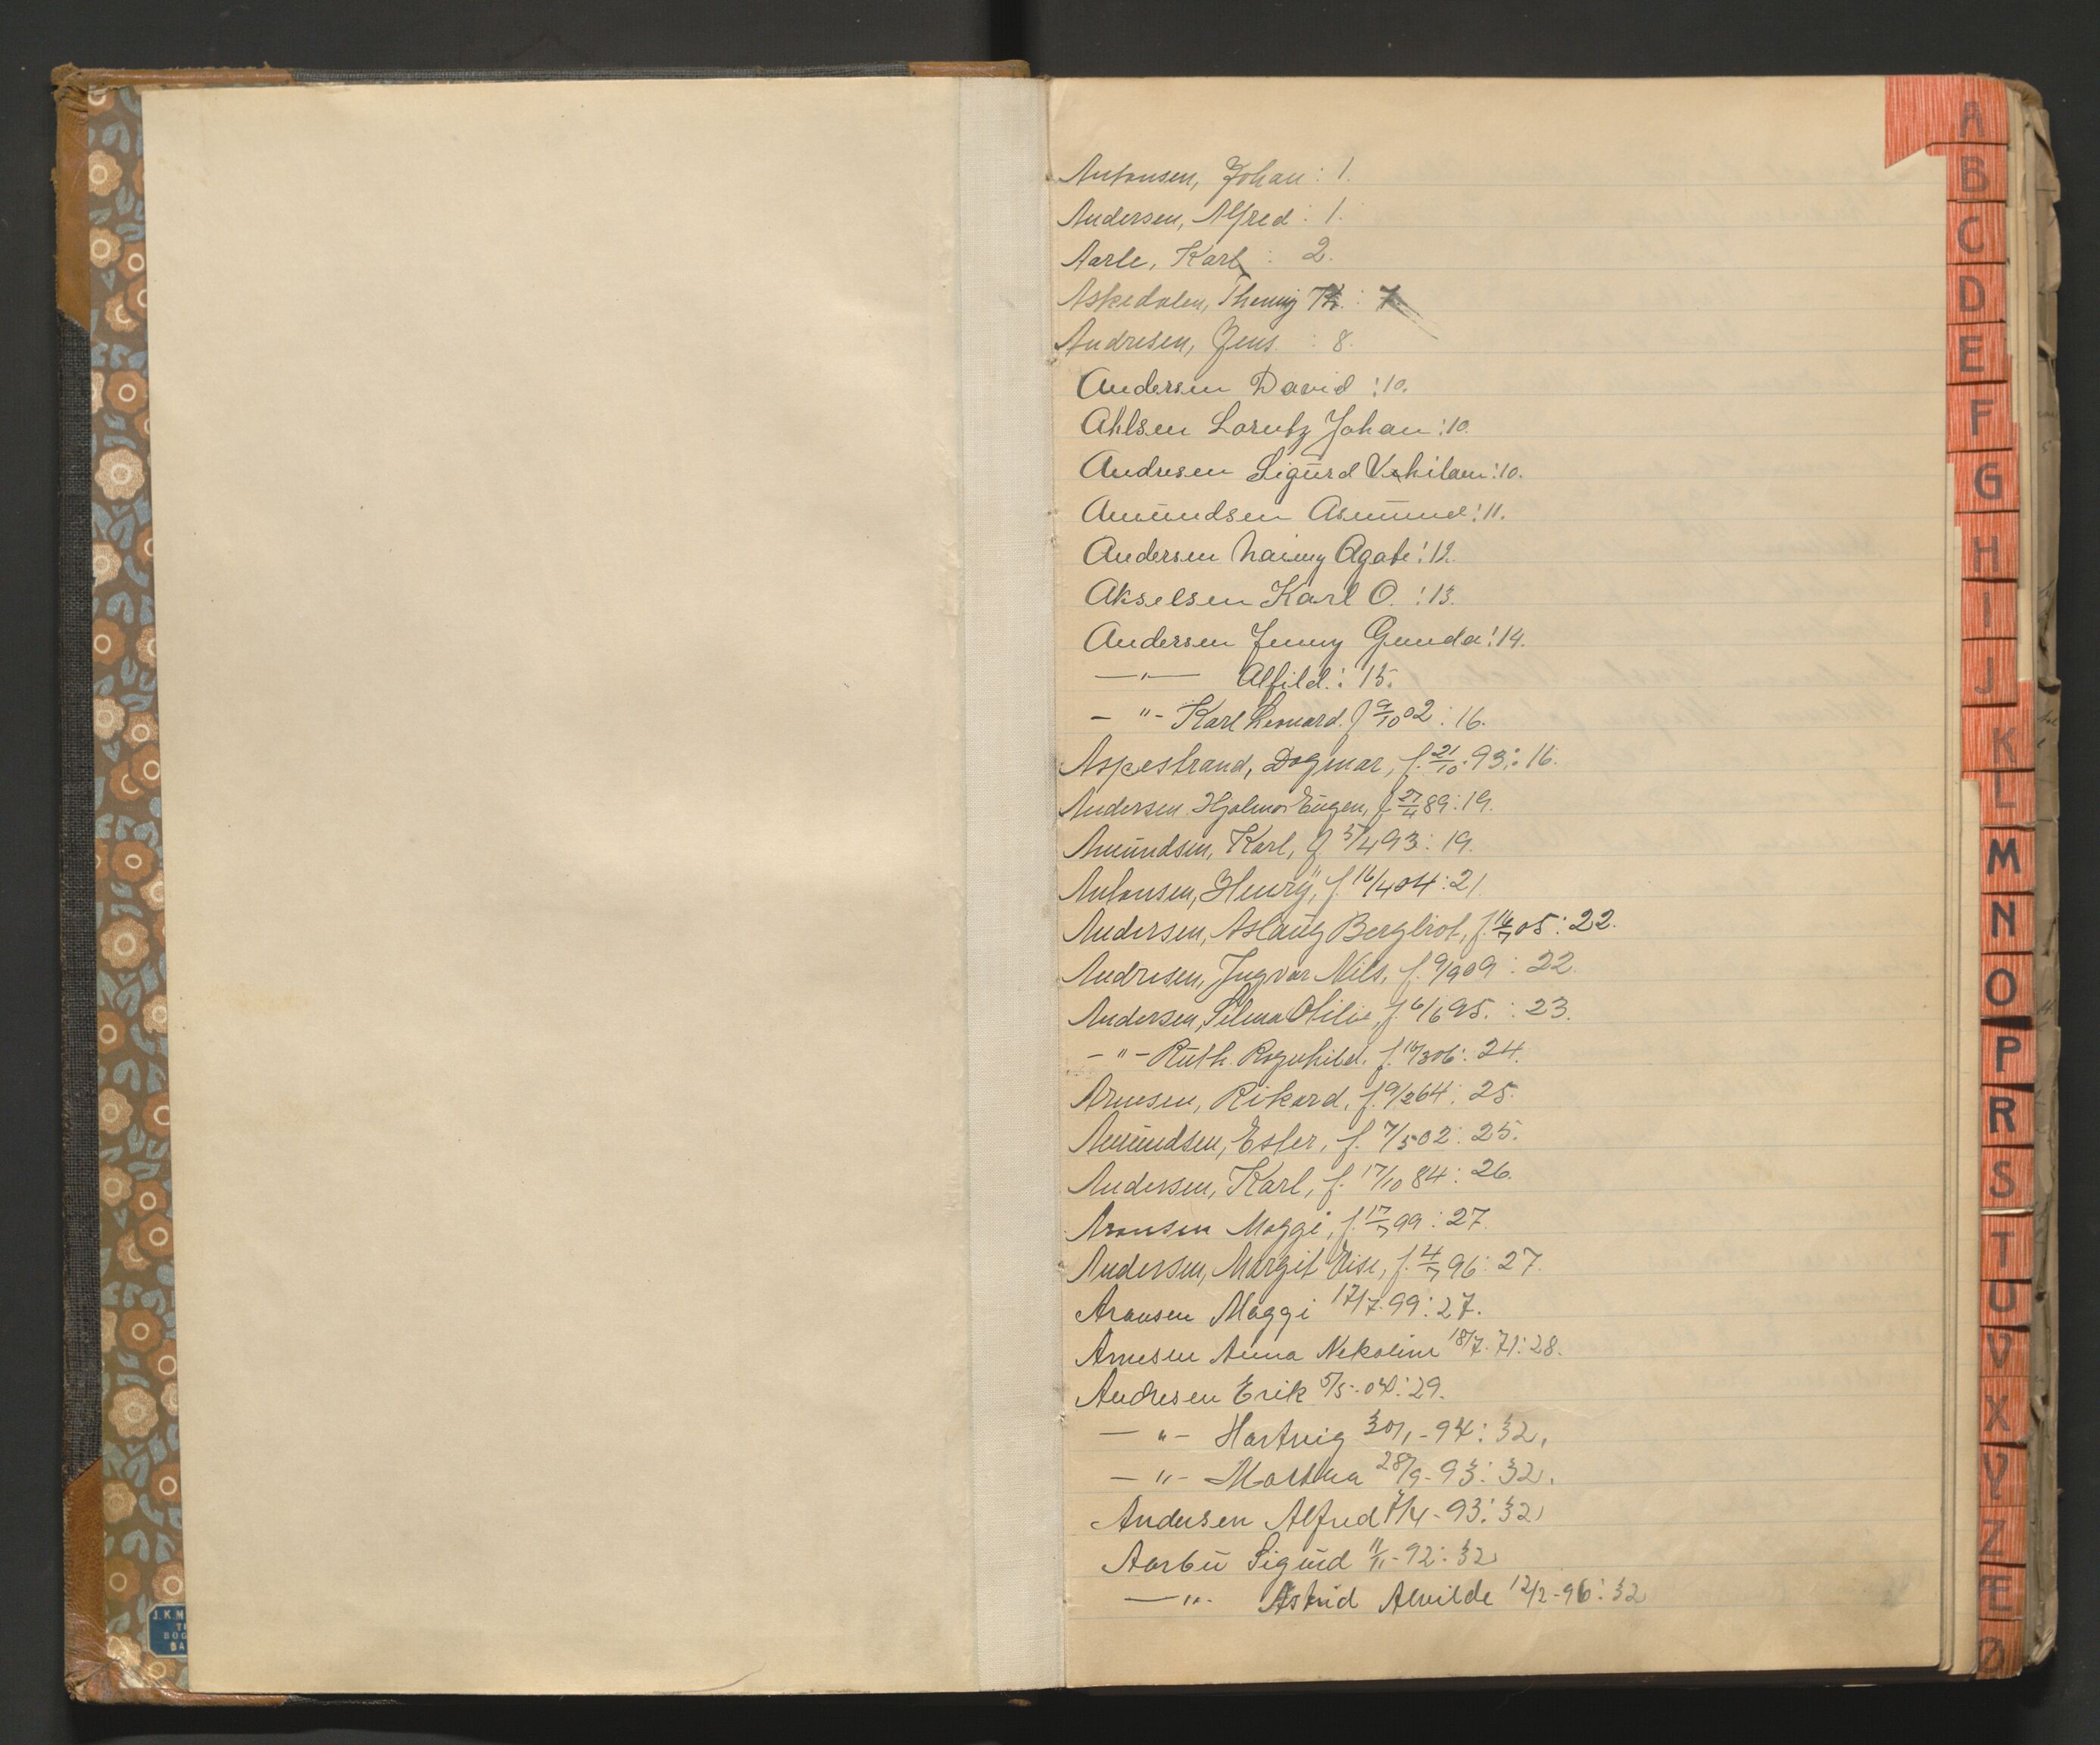 Antonsen, Johan : 1.
Andersen, Alfred : 1.
Aarle, Karl : 2.
Askedalen, Thomy Th. : 7.
Andresen, Jens. : 8.
Andersen David : 10.
Ahlsen Lorentz Johan : 10.
Andresen Sigurd : 10.
Amundsen Asmund : 11.
Andersen Agate : 12.
Akselsen Karl O. : 13.
Andersen Jenny Gunda : 14.
—"— Alfild. : 15.
- "- Karl Leonard. f 9/10 02 : 16.
Aspestrand, Dagmar, f. 21/10. 93 : 16.
Andersen Hjalmar Eugen, f 27/4 89 : 19.
Amundsen, Karl, f 5/4 93 : 19.
Antonsen, Henry, f. 16/4 04 : 21.
Andersen, Aslaug Bergliot, f. 16/7 05 : 22.
Andresen, Ingvar Nils, f. 9/9 09 : 22.
Andersen, Selma Otilie f. 6/6 95. : 23.
- "- Ruth. Ragnhild. f. 16/3 06 : 24.
Arnesen, Rikard, f. 9/2 64 : 25.
Amundsen, Ester, f. 7/5 02 : 25.
Andersen, Karl, f. 17/10 84 : 26.
Aronsen Maggi, f. 17/7 99 : 27.
Andersen, Margit Elise, f. 4/7 96 : 27.
Aronsen Maggi 17/7. 99 : 27.
Arnesen Anna Nekoline 18/7. 71 : 28.
Andresen Erik 5/5 - : 29.
— "- Hartvig 30/1 - 94 : 32.
- "- Martha 28/9 - 93 : 32.
Andersen Alfred 7/4 - 93 : 32
Aarbu Sigurd 11/11 - 92 : 32
—"- Astrid Alvilde 12/2 - 96 : 32
A
B
C
D
E
F
G
H
I
J
K
L
M
N
O
P
R
S
T
U
V
X
Y
Z
Æ
Ø
J. K. M
BOG